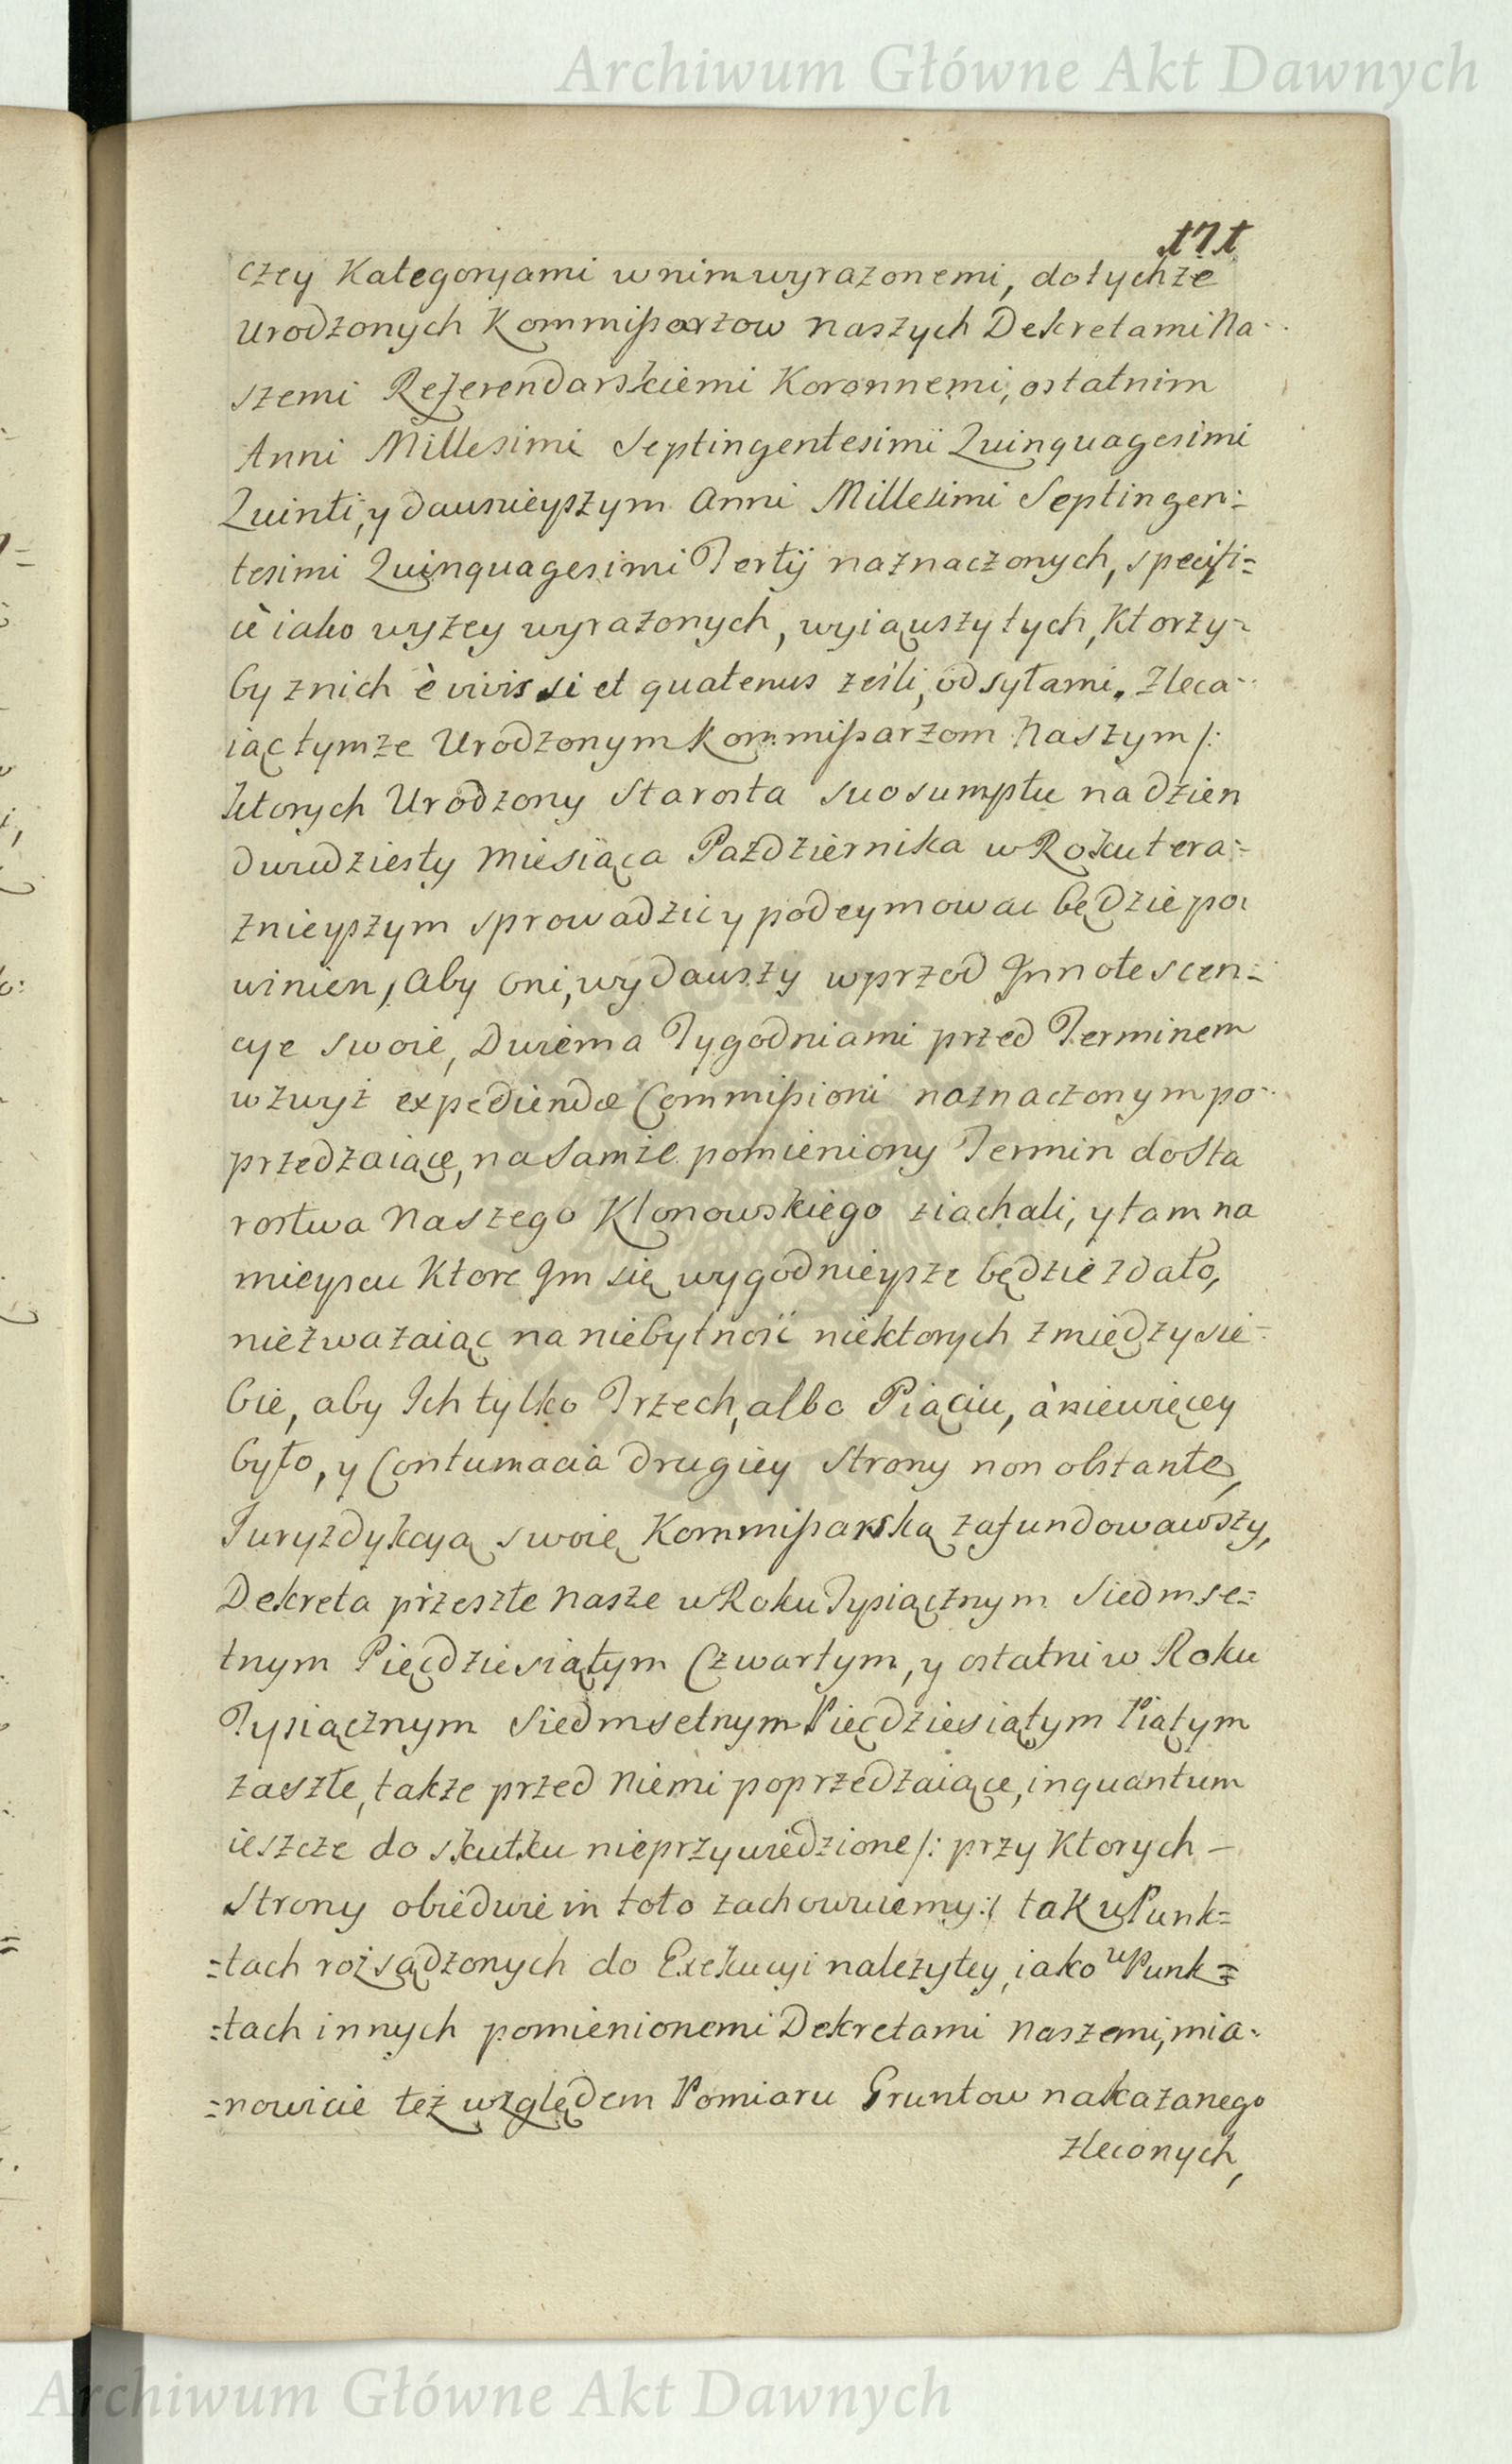 Archiwum Główne Akt Dawnych
171
czey Kategoryami w nim wyrazonemi, do tychże
Urodzonych Kommissarzow naszych Dekretami Na-
szemi Referendarskiemi Koronnemi, ostatnim
Anni Millesimi Septingentesimi Quinquagesimi
Quinti, y dawnieyszym Anni Millesimi Septingen=
tesimi Quinquagesimi Tertij naznaczonych, specifi=
cè iako wyżey wyrażonych, wyiąwszy tych, Ktorzy=
by znich è vivis si et quatenus zeszli, odsyłami. Zleca-
iąc tymże Urodzonym Kommissarzom Naszym /:
ktorych Urodzony Starosta suo sumptu na dzien
dwudziesty Miesiąca Pazdziernika w Roku tera=
znieyszym sprowadzić y podeymowac będzie po-
winien, aby oni, wydawszy wprzod Innotescen=
cye swoie, Dwiema Tygodniami przed Terminem
wzwyż expediendæ Commissioni naznaczonym po-
przedzaiące, na Samże pomieniony Termin do Sta
rostwa Naszego Klonowskiego ziachali, y tam na
mieyscu Ktore Im się wygodnieysze będzie zdało,
nie zważaiąc na niebytność niektorych z między sie-
bie, aby Ich tylko Trzech, albo Pięciu, à niewięcey
było, y Contumacia drugiey Strony non obstante,
Juryzdykcyą swoię Kommissarską zafundowawszy,
Dekreta przeszłe Nasze w Roku Tysiącznym Siedmse=
tnym Pięcdziesiątym Czwartym, y ostatni w Roku
Tysiącznym Siedmsetnym Pięcdziesiątym Piątym
zaszłe, także przed Niemi poprzedzaiące, inquantum
ieszcze do skutku nieprzywiedzione /: przy Ktorych –
Strony obiedwie in toto zachowuiemy :/ tak w Punk=
=tach rozsądzonych do Exekucyi należytey, iako w Punk=
=tach innych pomienionemi Dekretami Naszemi, mia-
=nowicie też względem Pomiaru Gruntow nakazanego
zleconych,
Archiwum Główne Akt Dawnych